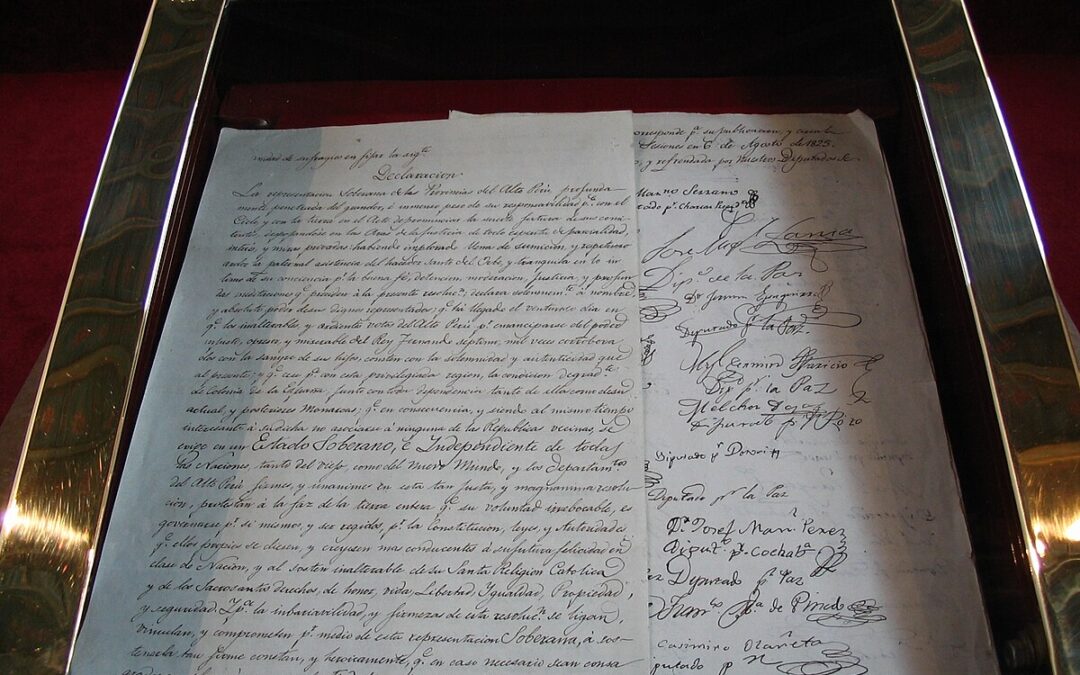 nidad de sufragios en fijar la sigte
Declaracion
La representacion Soberana de las Provincias del Alto Perú profunda-
mente penetrada del grandor, é inmenso peso de su responsabilidad pa. con el
Cielo, y con la tierra en el Acto de pronunciar la suerte futura de sus comi-
tentes, despojandose en las Aras de la Justicia de todo espiritu de parcialidad,
interés, y miras privadas habiendo implorado llena de sumicion, y respetuoso
ardor la paternal asistencia del hacedor Santo del Orbe, y tranquila en lo in-
timo de su conciencia pr. la buena fé, detencion, moderacion, Justicia, y profun-
das meditaciones qe. preciden á la presente resolucn. declara solemnemte. á nombre,
y absoluto poder de sus dignos representados; qe. há llegado el venturoso dia en
qe. los inalterables, y ardientes votos del Alto Perú pr. emanciparse del poder
injusto, opresor, y miserable del Rey Fernando septimo, mil veces corrobora-
dos con la sangre de sus hijos, consten con la solemnidad, y autenticidad que
al presente, y qe. cese pa. con esta privilegiada region, la condicion degradte.
de Colonia de la España junto con toda dependencia, tanto de ella como de su
actual, y posteriores Monarcas; qe. en consecuencia, y siendo al mismo tiempo
interesante á su dicha no asociarse á ninguna de las Republicas vecinas se
erige en un Estado Soberano, é Independiente de todas
las Naciones, tanto del viejo, como del Nuevo Mundo, y los departamtos
del Alto Perú firmes, y unanimes en esta tan justa, y magnanima resolu-
cion, protestan á la faz de la tierra entera qe. su voluntad irrebocable, es
governarse pr. si mismos, y ser regidos, pr. la Constitucion, leyes, y Autoridades
qe. ellos propios se diesen, y creyesen mas conducentes á su futura felicidad en
clase de Nacion, y al sosten inalterable de su Santa Religion Catolica
y de los Sacrosantos derechos, de honor, vida, Libertad, Igualdad, Propiedad,
y seguridad. Y pa. la inbariavilidad, y firmeza de esta resolucn. se ligan,
vinculan, y comprometen pr. medio de esta representacion Soberana, á sos-
tenerla tan firme, constan, y heroicamente, qe. en caso necesario sean consa
corresponde pa. su publicacion, y circula
Sesiones en 6 de Agosto de 1825.
y refrendada por nuestros Diputados Se
Mariano Serrano
tado pr. Charcas
Jose
Dipo. de la Paz
Diputado pr. la Paz.
Fermin Aparicio
Dipo. pr. la Paz
Melchor
Diputado pr.
Diputado pr.
Diputado pr. la Paz
Dr. Josef Man. Perez
Diputo. pr. Cochaba
Diputado pr. Paz
Franco. Ma. de Pinedo
Casimiro Olañeta
putado pr.